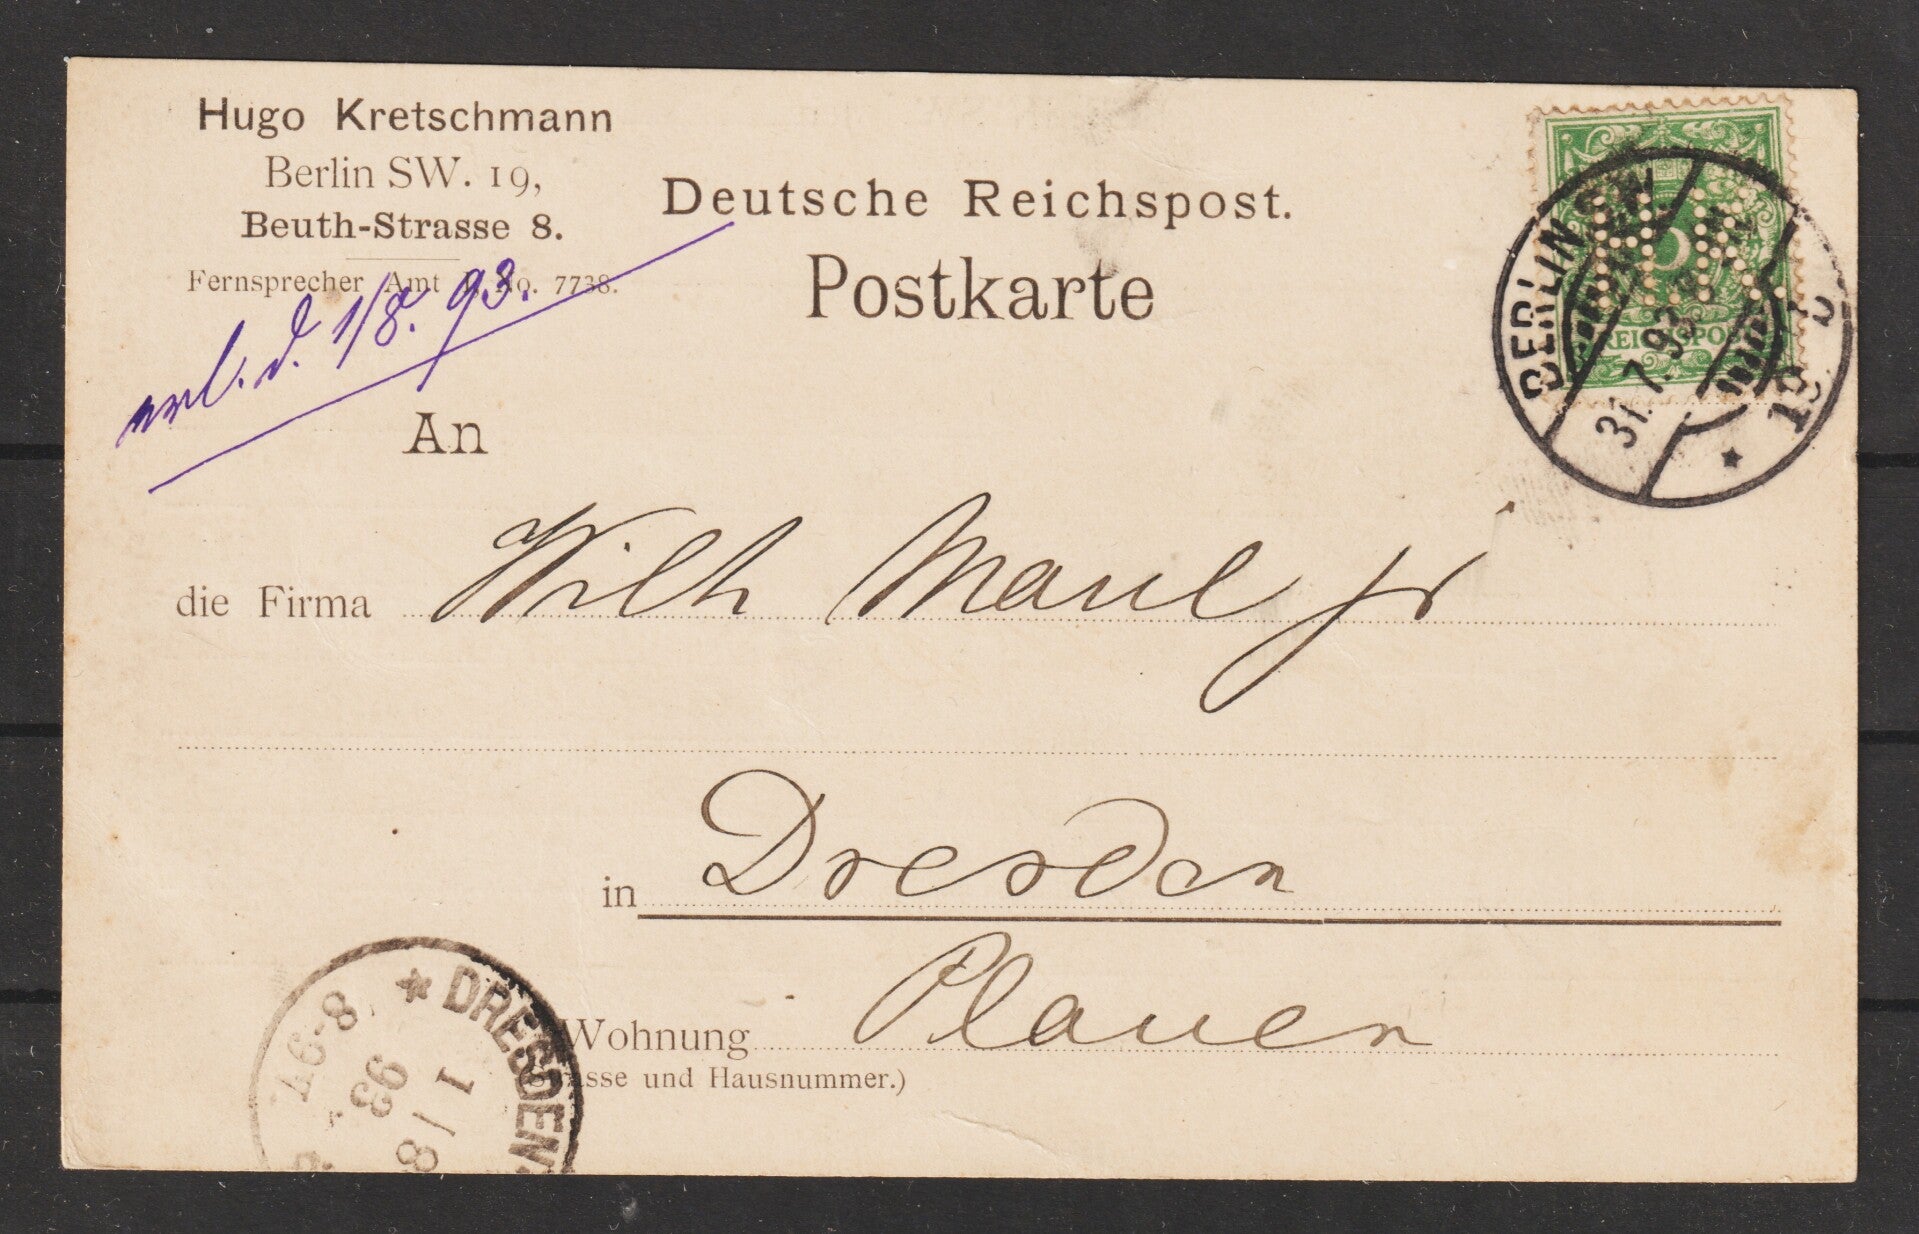 Hugo Kretschmann
Berlin SW. 19,
Beuth-Strasse 8.
Fernsprecher Amt No. 7738.
erl. d. 1/8. 93.
Deutsche Reichspost.
Postkarte
BERLIN SW
31.7.93
19
REICHSPOST
An
die Firma Wilh Maul jr
in Dresden
Wohnung Plauen
Strasse und Hausnummer.)
* DRESDEN.
1/8
93
8-9V